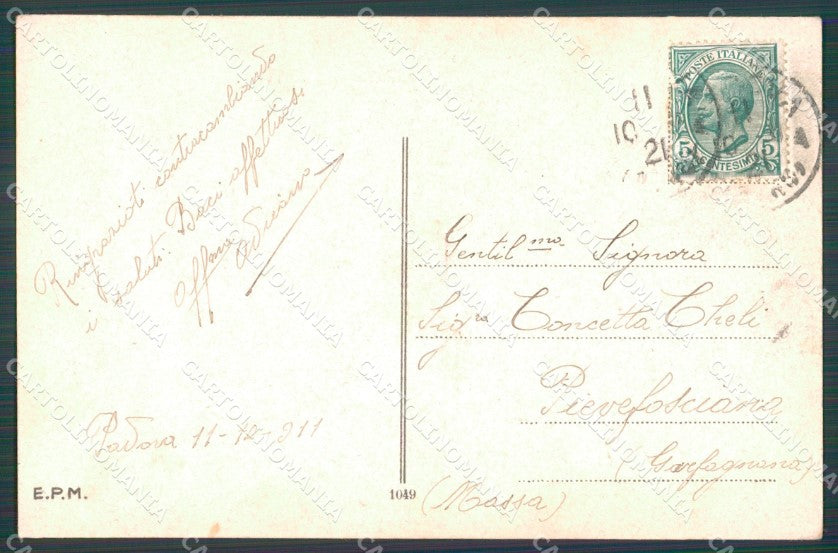 Ringraziati contraccambiando
i saluti. Baci affettuosi
Affma
Padova 11-12-911
E.P.M.
1049
POSTE ITALIANE
5 5
CENTESIMI
11
10
21
Gentil.ma Signora
Sigra Concetta Cheli
Pievefosciana
(Garfagnana)
(Massa)
CARTOLINOMANIA